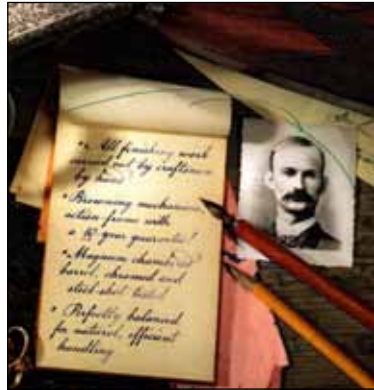 • All finishing work
carried out by craftsmen
by hand!
• Browning mechanism,
action-frame with
a 10 year guarantee!
• Magnum chambered
barrel, chromed and
steel-shot tested
• Perfectly balanced
for natural, efficient
handling